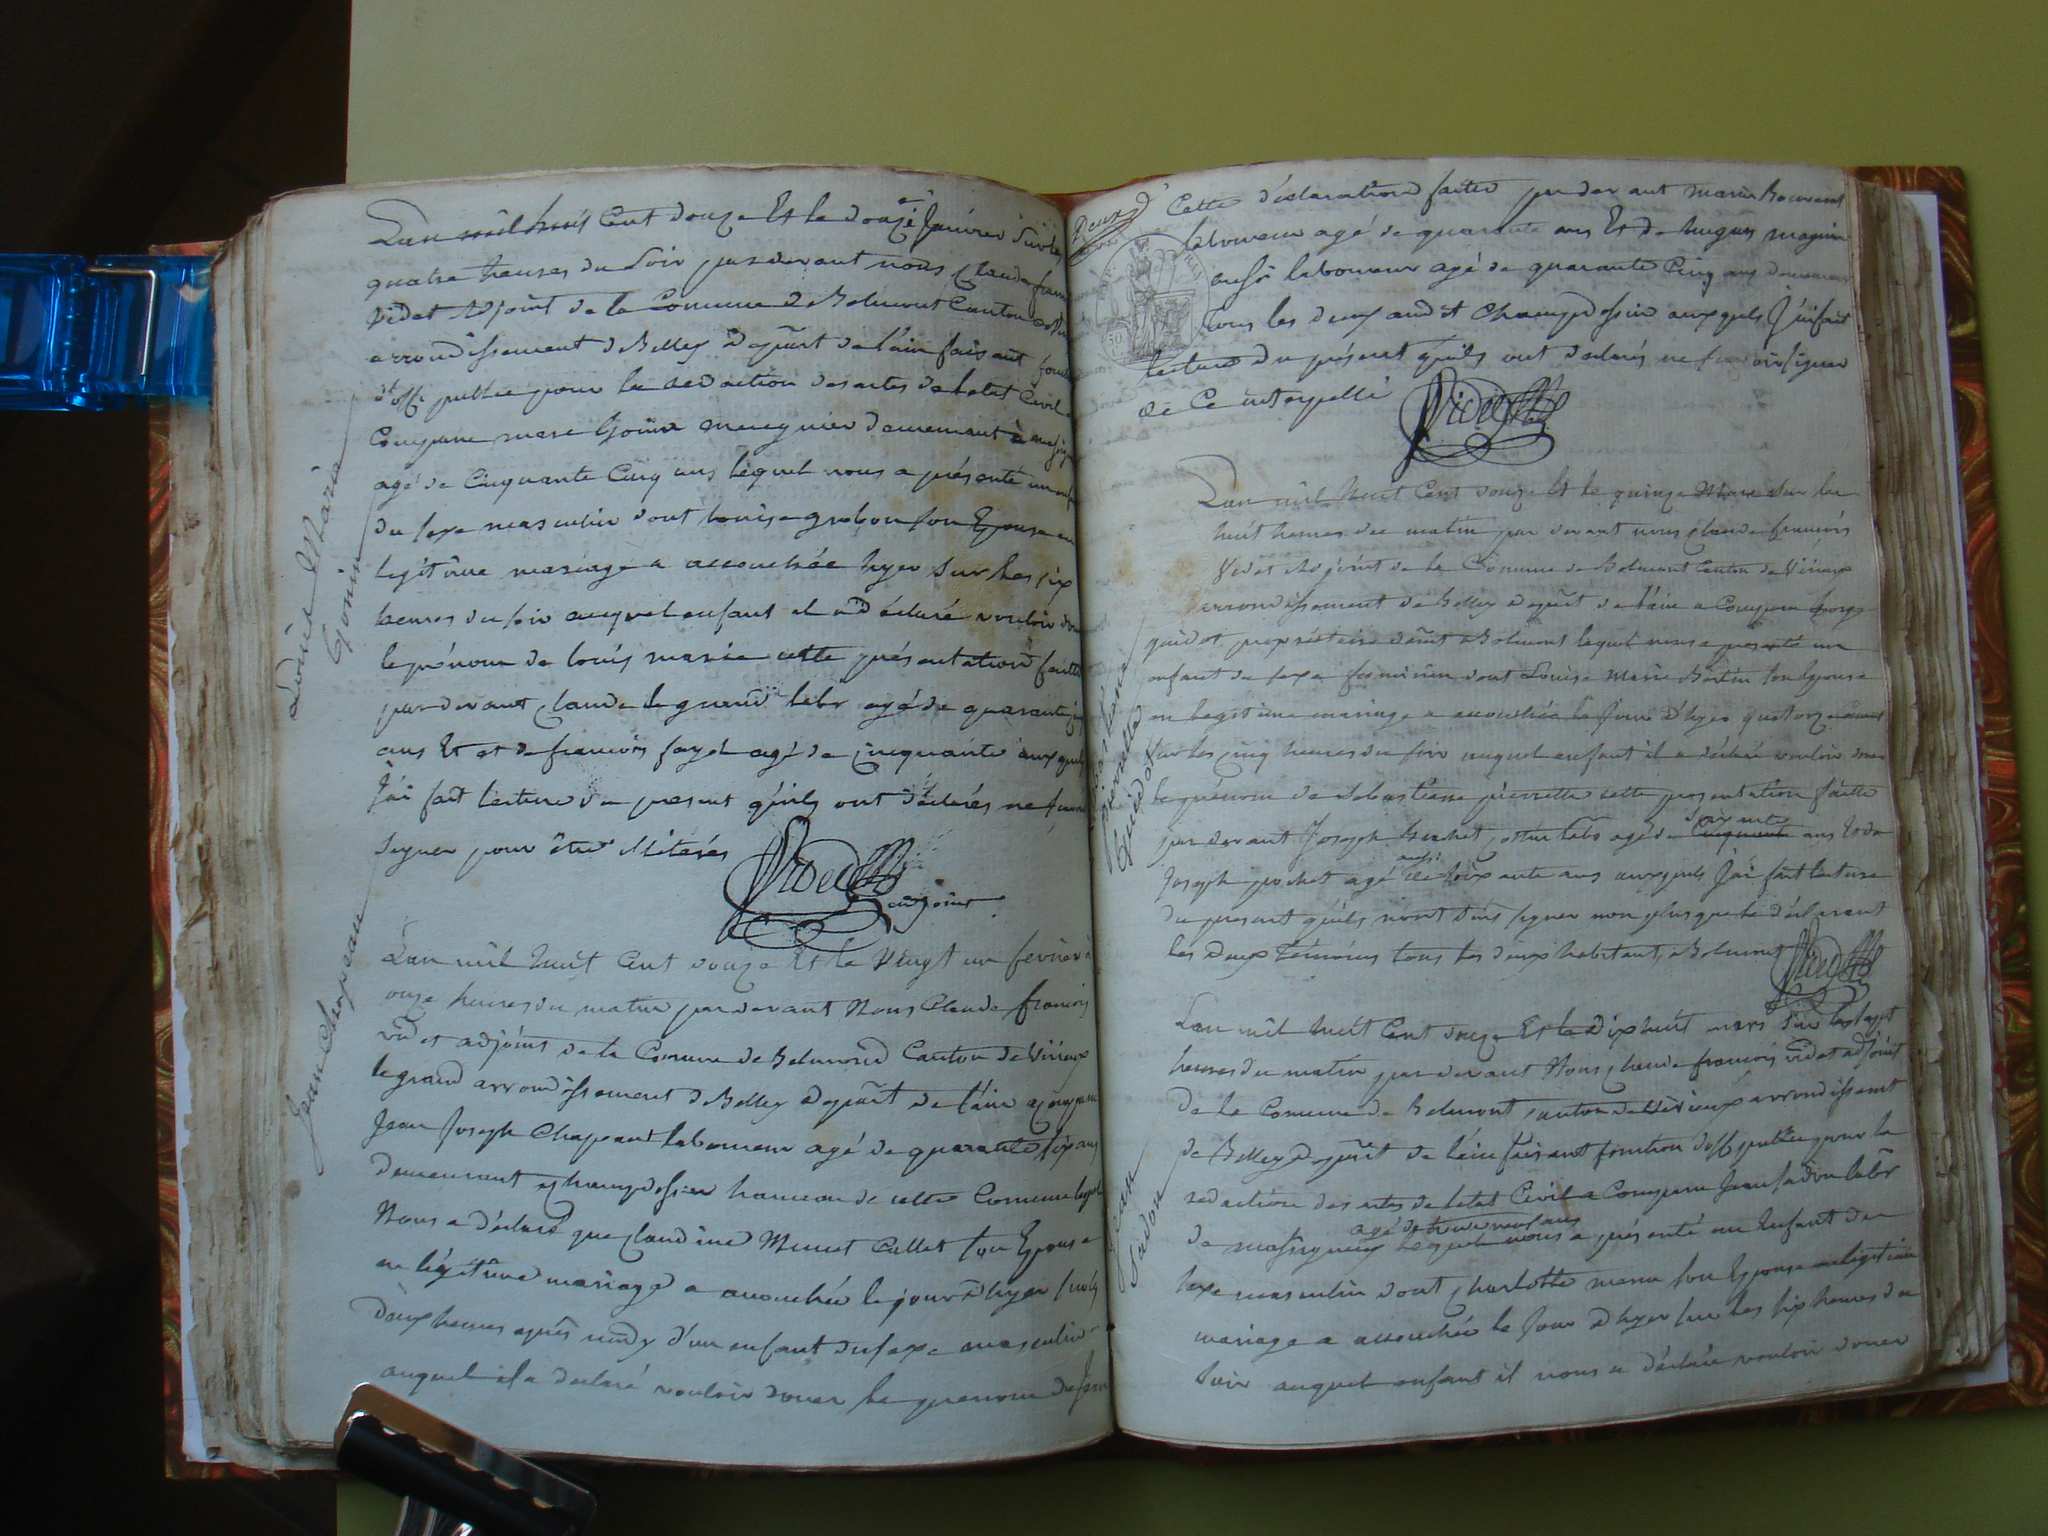 Louis Marie
Gonin
L'an mil huit Cent douze Et le douze Janvier Sur les
quatre heures du Soir par devant nous Claude
Videt Adjoint de la Commune de Belmont Canton de
arrondissement de Belley Depart de l'ain faisant
d'off public pour la redaction des actes de letat Civil a
Comparu marc Gonin demeurant à
agé de Cinquante Cinq ans lequel nous a présenté un
du sexe masculin dont louise son Epouse en
legitime mariage a accouchée hyer Sur les six
heures du soir auquel enfant il a déclaré vouloir
le prénom de louis marie cette présentation faitte
par devant Claude le grand labr agé de quarante
ans Et et de francois fayet agé de cinquante auxquels
J'ai fait lecture du present qu'ils ont déclarés ne
signer pour être illiterés
Videt
adjoint
Jean Chapeau
L'an mil huit Cent douze Et le vingt un fevrier à
onze heures du matin par devant Nous Claude francois
videt adjoint de la Comune de Belmond Canton de Virieux
le grand arrondissement de Belley Depart de l'ain a comparu
Jean Joseph Chapeau laboureur agé de quarante six ans
demeurant a champdossin hameau de cette Commune lequel
Nous a déclaré que Claudine Callet son Epouse
en légitime mariage a accouchée le jour d'hyer
deux heures après midy d'un enfant du sexe masculin
auquel il a déclaré vouloir doner le prenom de Jean
Deux
Cette déclaration faitte par devant marin
laboureur agé de quarante ans Et de hugues magnin
aussi laboureur agé de quarante Cinq ans demeurant
tous les deux audit Champdossin auxquels J'ai fait
lecture du présent qu'ils ont declarés ne savoir signer
de Ce interpellé
Videt
pierrette
Guidot
L'an mil huit Cent douze Et le quinze Mars Sur les
huit heures du matin par devant nous Claude francois
Videt Adjoint de la Comune de Belmont Canton de Virieux
arrondissement de Belley Depart de l'ain a Comparu
guidot propriétaire demt a Belmont lequel nous a presenté un
enfant du sexe feminin dont Louise Marie son Epouse
en legitime mariage a accouchée le Jour d'hyer quatorze
Sur les cinq heures du soir auquel enfant il a déclaré vouloir
le prénom de Sebastiene pierrette cette presentation faitte
soixante
par devant Joseph labr agé de cinquante ans Et de
aussi
Joseph pochet agé de soixante ans auxquels J'ai fait lecture
du present qu'ils n'ont sus signer non plus que le déclarant
les deux témoins tous les deux habitant a Belmont
Videt
Jean
L'an mil huit Cent douze Et le dix huit mars sur les sept
heures du matin par devant Nous Claude francois videt adjoint
de la Comune de Belmont Canton de Virieux arrondissemt
de Belley Depart de l'ain faisant fonction d'off public pour la
redaction des actes de letat Civil a Comparu Jean labr
agé de trente neuf ans
de massigneux lequel nous a présenté un Enfant du
sexe masculin dont Charlotte son Epouse en legitime
mariage a accouchée le Jour d'hyer sur les six heures du
soir auquel enfant il nous a déclaré vouloir doner